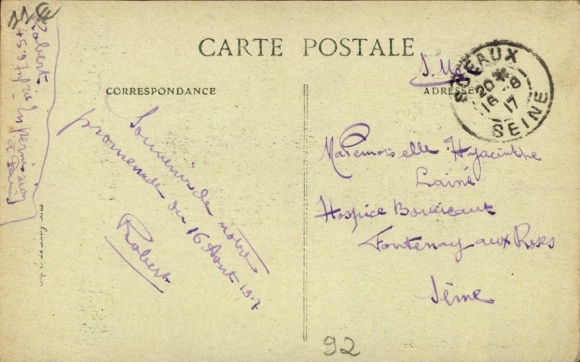 CARTE POSTALE
CORRESPONDANCE
ADRESSE
SCEAUX
20 *
16 - 8
17
SEINE
Robert
Souvenir de notre
promenade du 16 Août 1917
Robert
Mademoiselle Hyacinthe
Lainé
Hospice Boucicaut
Fontenay aux Roses
Seine
92